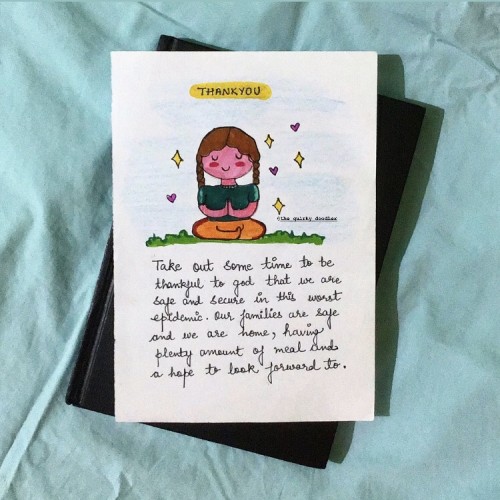 THANKYOU
©the quirky doodles
Take out some time to be
thankful to god that we are
safe and secure in this worst
epidemic. Our families are safe
and we are home, having
plenty amount of meal and
a hope to look forward to.